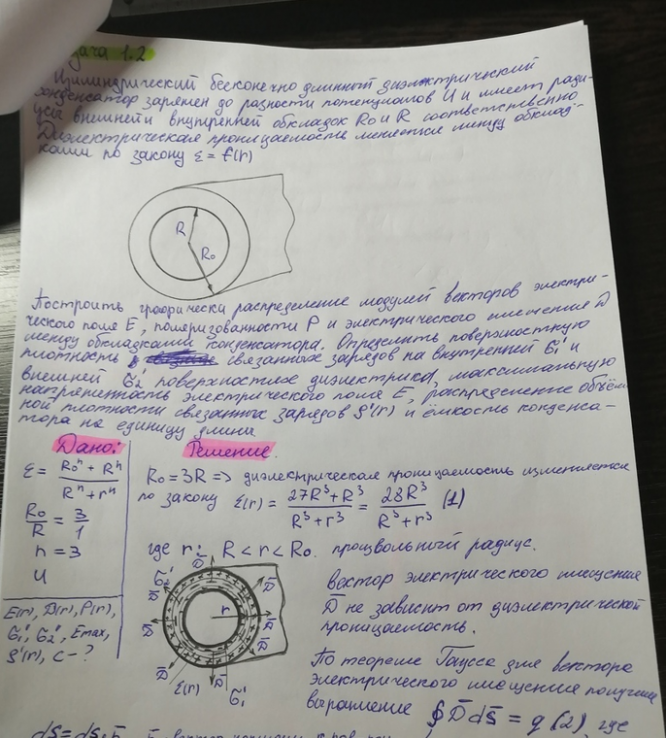 дача 1.2
Цилиндрический бесконечно длинный диэлектрический
конденсатор заряжен до разности потенциалов U и имеет ради-
усы внешней и внутренней обкладок R₀ и R соответственно
Диэлектрическая проницаемость меняется между обклад-
ками по закону ε = f(r)
R
R₀
Построить графически распределение модулей векторов электри-
ческого поля E, поляризованности P и электрического смещения D
между обкладками конденсатора. Определить поверхностную
плотность связанных зарядов на внутренней σ₁' и
внешней σ₂' поверхностях диэлектрика, максимальную
напряженность электрического поля E, распределение объём-
ной плотности связанных зарядов ρ'(r) и ёмкость конденса-
тора на единицу длины
Дано:
ε = (R₀ⁿ + Rⁿ)/(Rⁿ + rⁿ)
R₀/R = 3/1
n = 3
U
E(r), D(r), P(r),
σ₁', σ₂', Emax,
ρ'(r), C - ?
Решение.
R₀ = 3R => диэлектрическая проницаемость изменяется
по закону ε(r) = (27R³ + R³)/(R³ + r³) = 28R³/(R³ + r³) (1)
где r: R < r < R₀. произвольный радиус.
σ₂'
D̄
r
ε(r)
σ₁'
Вектор электрического смещения
D̄ не зависит от диэлектрической
проницаемость.
По теореме Гаусса для вектора
электрического смещения получим
выражение ∮D̄dS̄ = q (2), где
dS̄ = dS·n̄,